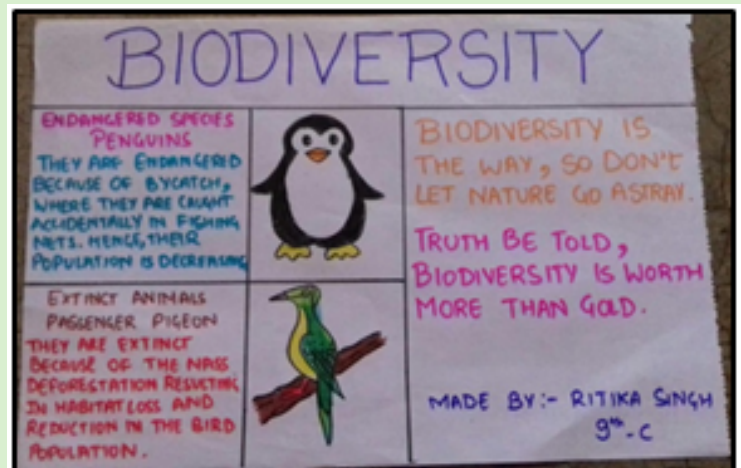 BIODIVERSITY
ENDANGERED SPECIES
PENGUINS
THEY ARE ENDANGERED
BECAUSE OF BYCATCH,
WHERE THEY ARE CAUGHT
ACCIDENTALLY IN FISHING
NETS. HENCE, THEIR
POPULATION IS DECREASING
EXTINCT ANIMALS
PASSENGER PIGEON
THEY ARE EXTINCT
BECAUSE OF THE MASS
DEFORESTATION RESULTING
IN HABITAT LOSS AND
REDUCTION IN THE BIRD
POPULATION.
BIODIVERSITY IS
THE WAY, SO DON'T
LET NATURE GO ASTRAY.
TRUTH BE TOLD,
BIODIVERSITY IS WORTH
MORE THAN GOLD.
MADE BY:- RITIKA SINGH
9th-C